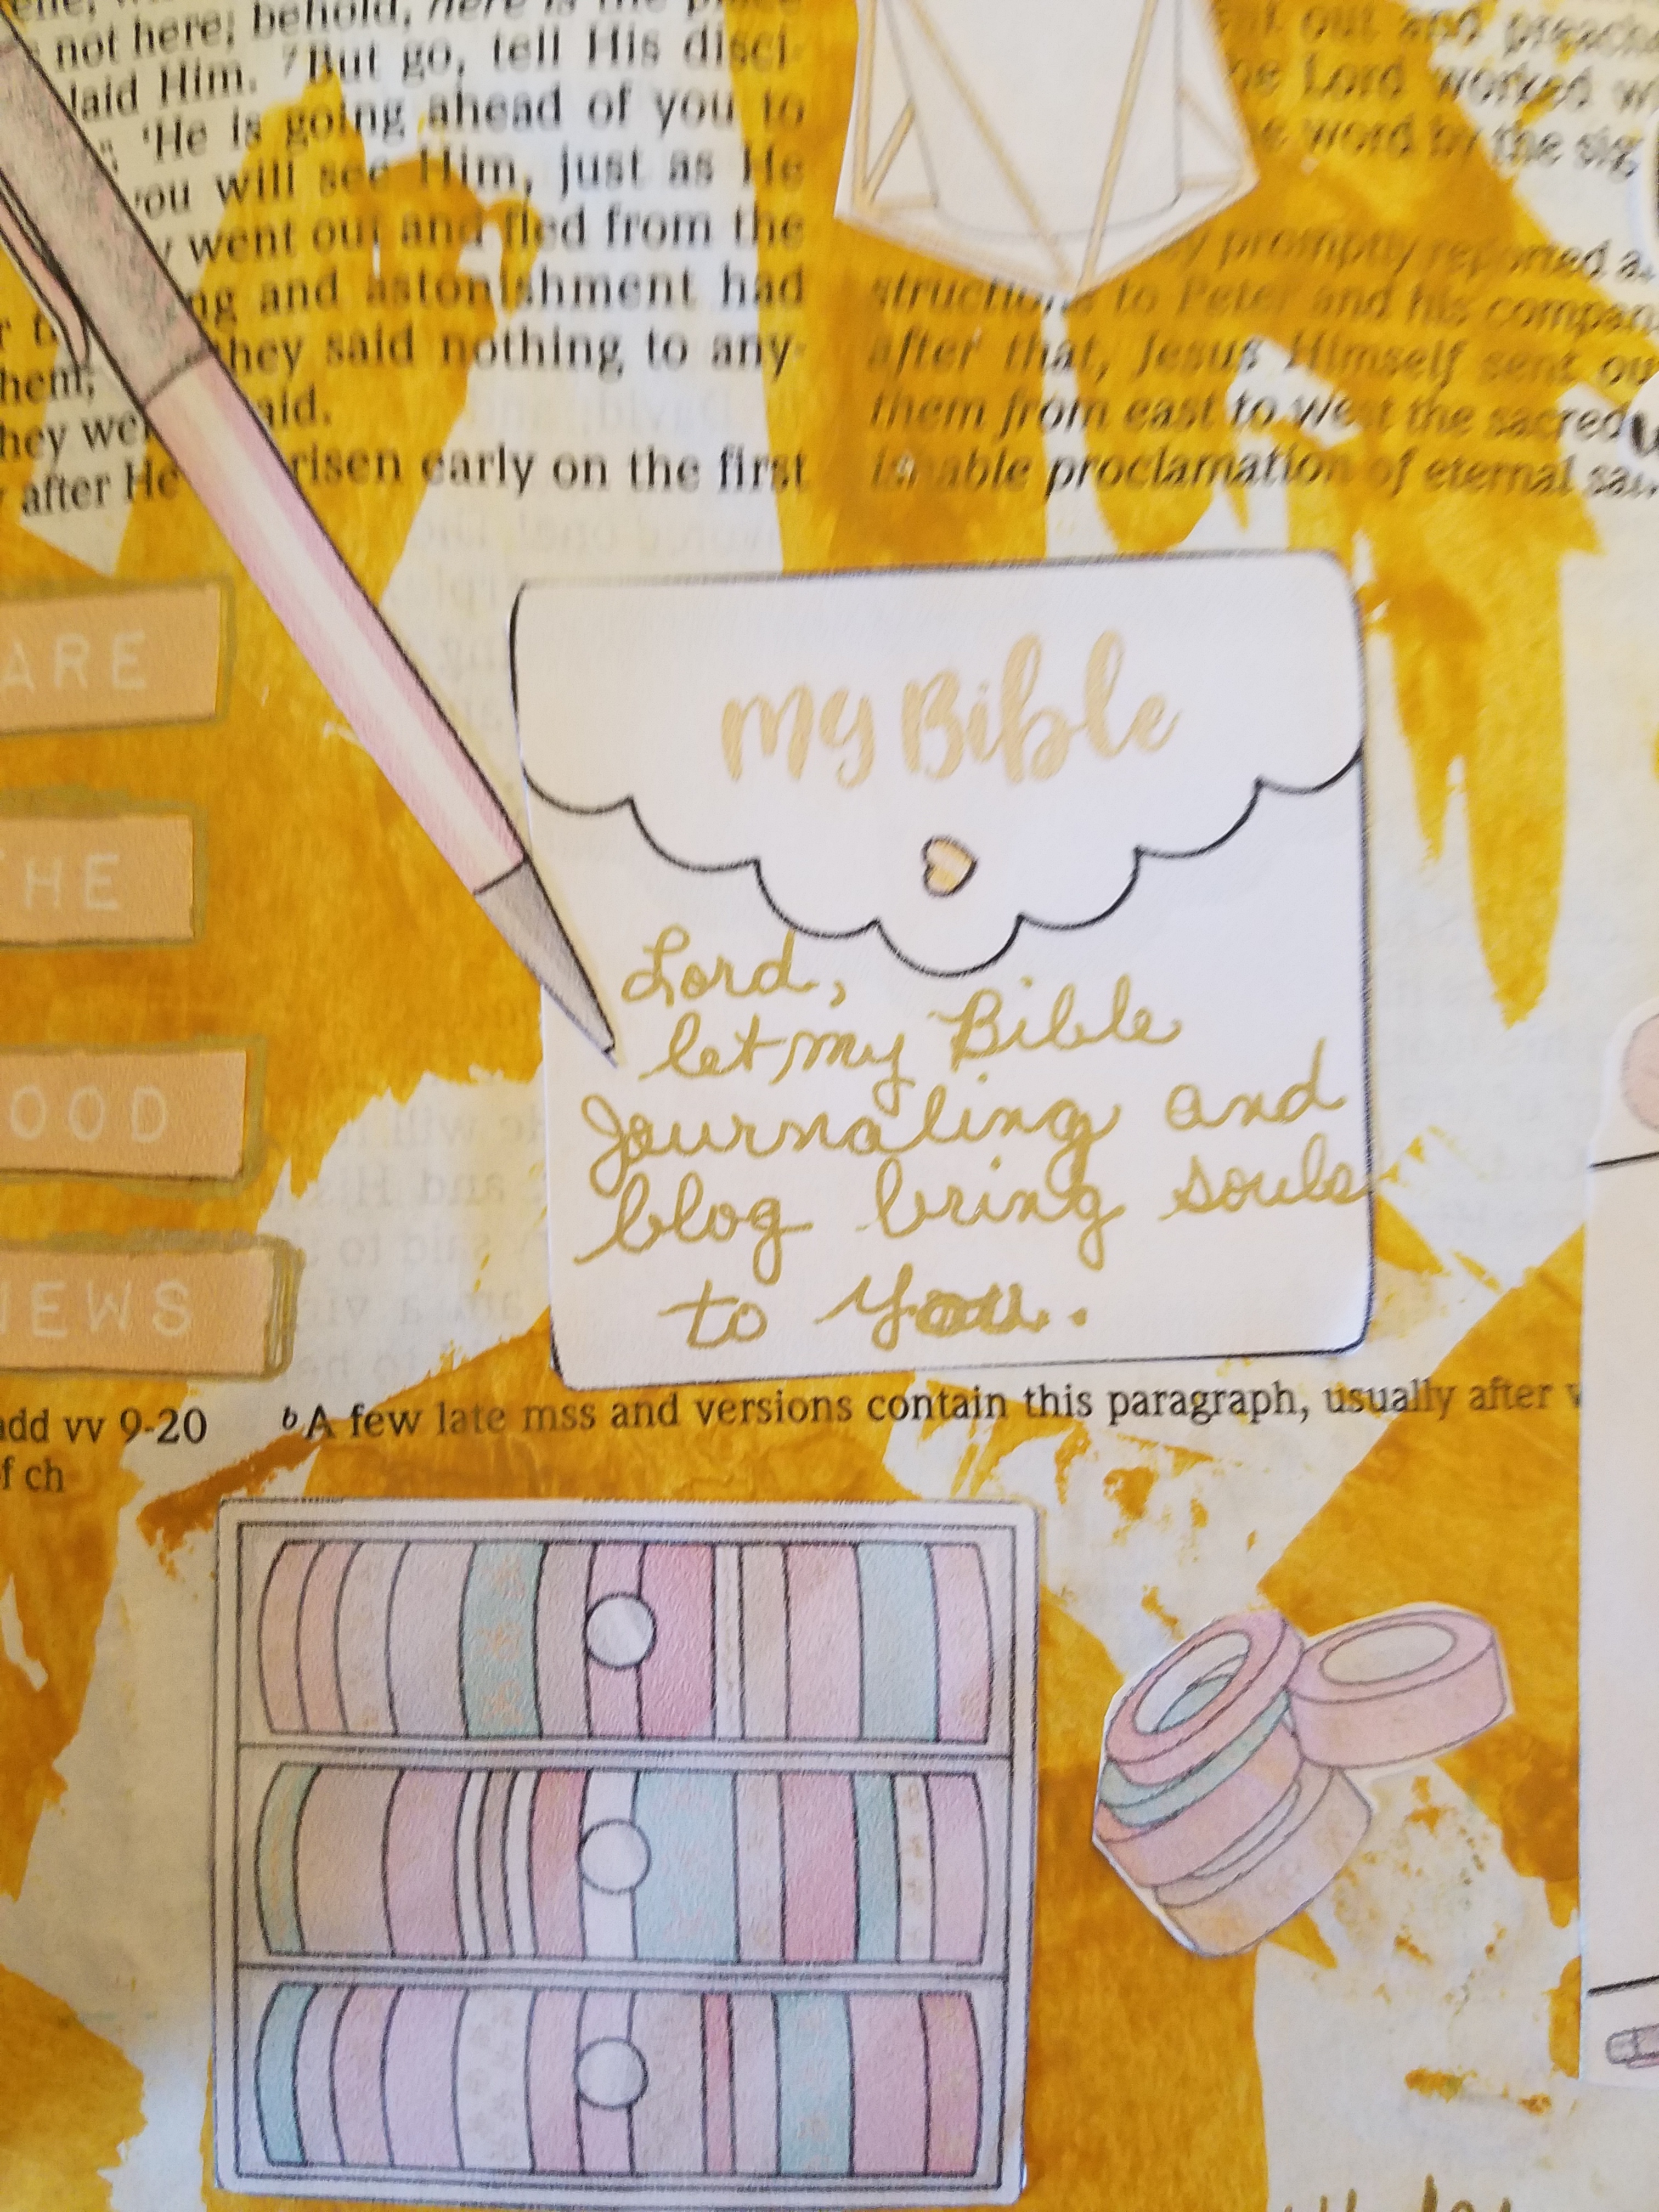 not here; behold, here is the place
laid Him. 7But go, tell His disci-
'He is going ahead of you to
you will see Him, just as He
went out and fled from the
and astonishment had
they said nothing to any-
them;
they
after He risen early on the first
out and preached
the Lord worked
word by the
promptly reported
to Peter and his
after that, Jesus Himself sent
them from east to west the sacred
proclamation of eternal
ARE
THE
OOD
NEWS
My Bible
Lord,
let my Bible
Journaling and
blog bring souls
to You.
add vv 9-20 bA few late mss and versions contain this paragraph, usually after
of ch